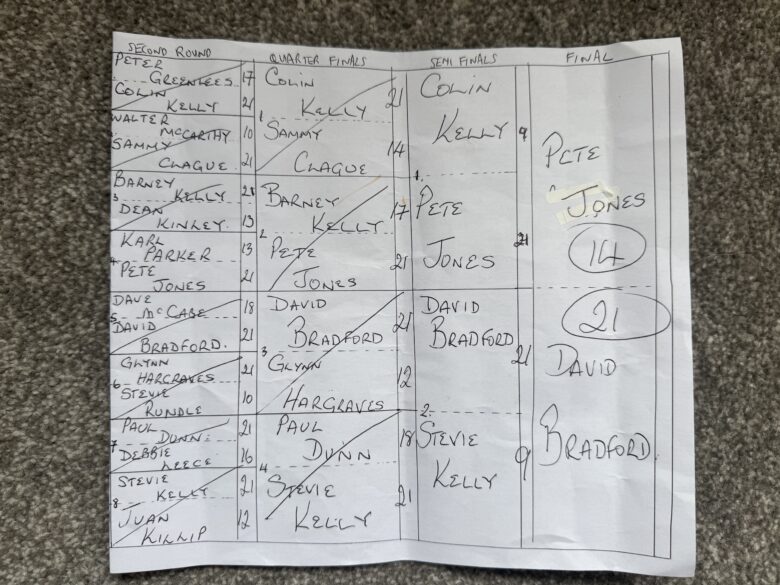 SECOND ROUND
PETER
GREENLEES 17
COLIN
KELLY 21
WALTER
MCCARTHY 10
SAMMY
CLAGUE 21
BARNEY
3 KELLY 21
DEAN
KINLEY 13
KARL
PARKER 13
4 PETE
JONES 21
DAVE
5 MCCABE 18
DAVID
BRADFORD. 21
GLYNN
6 HARGRAVES 21
STEVIE
RUNDLE 10
PAUL
7 DUNN 21
DEBBIE
LEECE 16
STEVIE
8 KELLY 21
JUAN
KILLIP 12
QUARTER FINALS
COLIN
KELLY 21
1
SAMMY
CLAGUE 14
BARNEY
KELLY 17
2
PETE
JONES 21
DAVID
BRADFORD 21
3
GLYNN
HARGRAVES 12
PAUL
DUNN 18
4
STEVIE
KELLY 21
SEMI FINALS
COLIN
KELLY 9
1.
PETE
JONES 21
DAVID
BRADFORD 21
2
STEVIE
KELLY 9
FINAL
PETE
JONES
14
21
DAVID
BRADFORD.